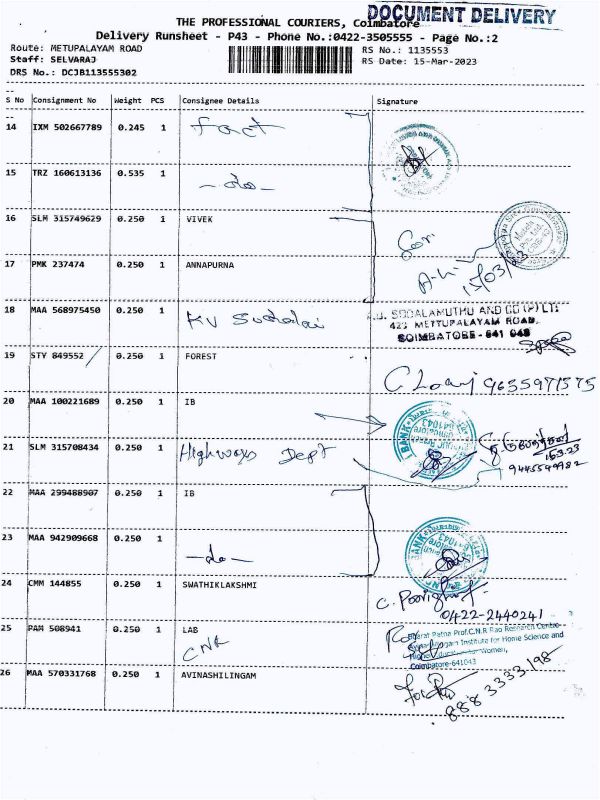 DOCUMENT DELIVERY
THE PROFESSIONAL COURIERS, Coimbatore
Delivery Runsheet - P43 - Phone No.:0422-3505555 - Page No.:2
Route: METUPALAYAM ROAD RS No.: 1135553
Staff: SELVARAJ RS Date: 15-Mar-2023
DRS No.: DCJB113555302
S No Consignment No Weight PCS Consignee Details Signature
14 IXM 502667789 0.245 1 Fact
15 TRZ 160613136 0.535 1 -do-
16 SLM 315749629 0.250 1 VIVEK
17 PMK 237474 0.250 1 ANNAPURNA
15/03/23
18 MAA 568975450 0.250 1 KV Sudalai
SUDALAMUTHU AND CO (P) LT
METTUPALAYAM ROAD,
COIMBATORE - 641 043
19 STY 849552 0.250 1 FOREST
9655971575
20 MAA 100221689 0.250 1 IB
21 SLM 315708434 0.250 1 Highways Dept
BANK
9445549982
22 MAA 299488907 0.250 1 IB
23 MAA 942909668 0.250 1 -do-
BANK
24 CMM 144855 0.250 1 SWATHIKLAKSHMI
0422-2440241
25 PAM 508941 0.250 1 LAB
CNR
Bharat Ratna Prof.C.N.R Rao Research Centre
Avinashilingam Institute for Home Science and
Higher Education for Women,
Coimbatore-641043
26 MAA 570331768 0.250 1 AVINASHILINGAM
888 3333 198